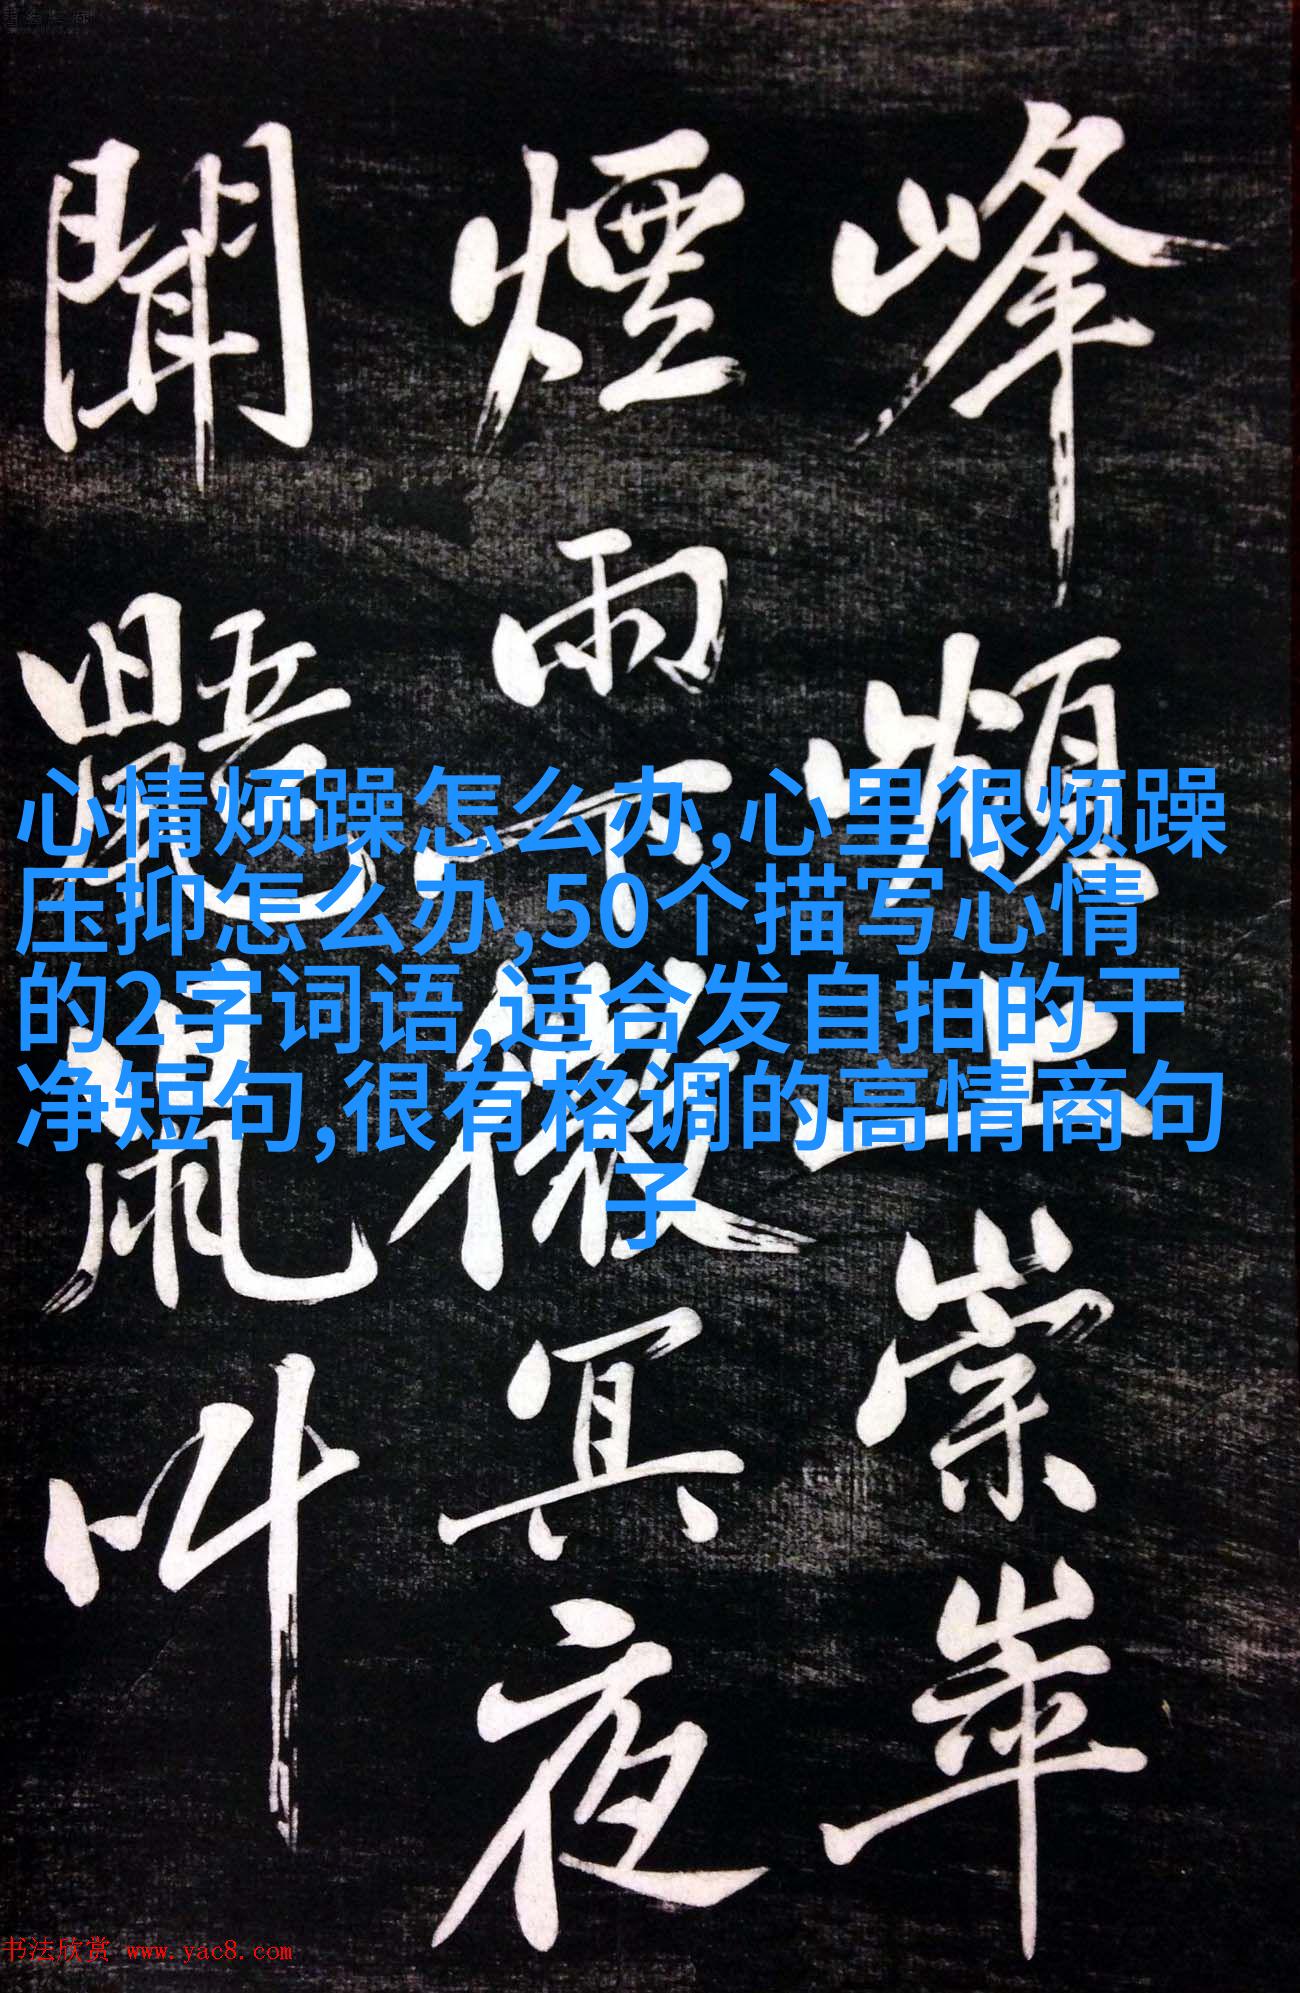 峰上崇崒
煙雨下微冥夜
聞鼯鼠叫
心情烦躁怎么办,心里很烦躁
压抑怎么办,50个描写心情
的2字词语,适合发自拍的干
净短句,很有格调的高情商句
子
书法欣赏 www.yac8.com